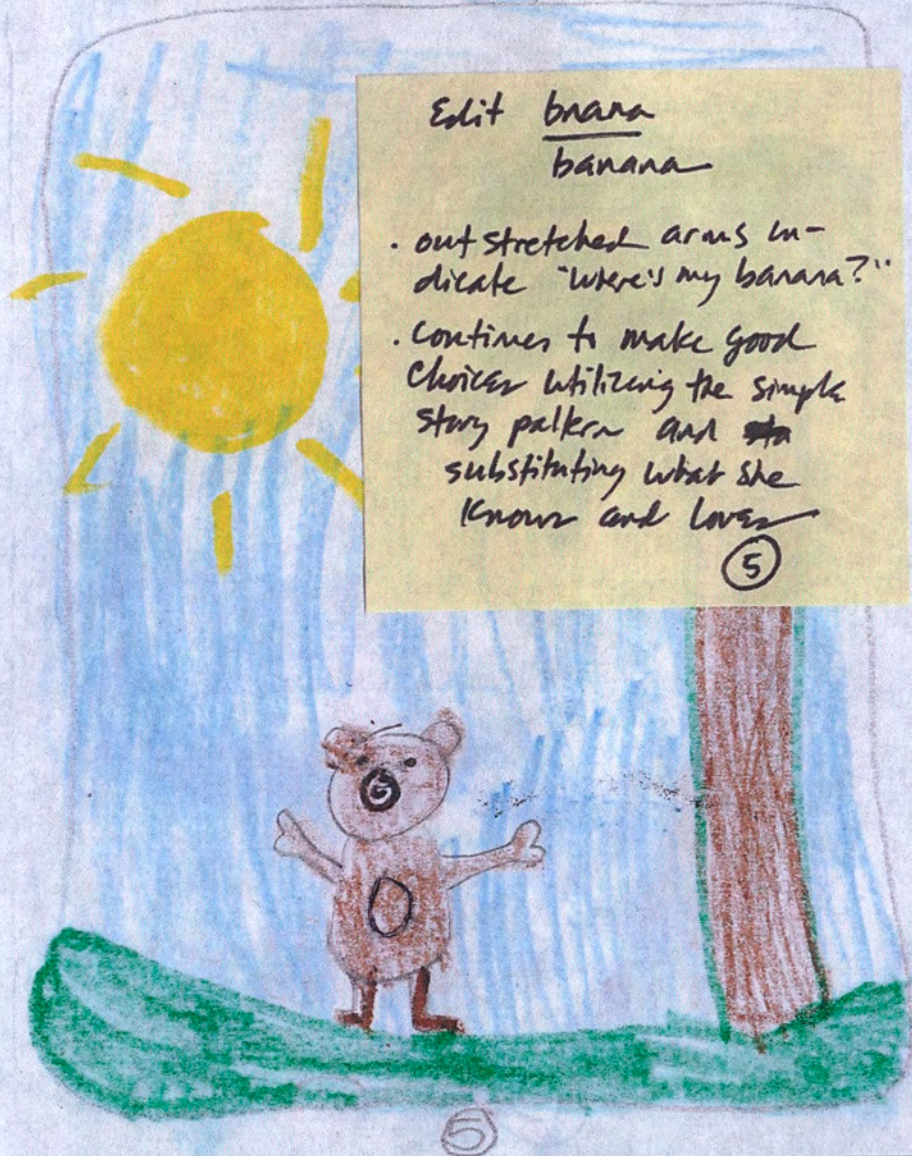 Edit bnana
banana
· out stretched arms in-
dicate "where's my banana?"
· Continues to make good
choices utilizing the simple
story pattern and
substituting what she
knows and loves
5
5